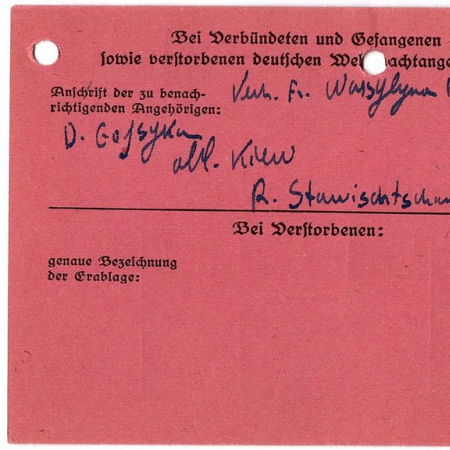 Bei Verbündeten und Gefangenen
sowie verstorbenen deutschen
Anschrift der zu benach-
richtigenden Angehörigen:
Wassylyna
D.
obl. Kiew
R. Stawischtschan
Bei Verstorbenen:
genaue Bezeichnung
der Grablage: